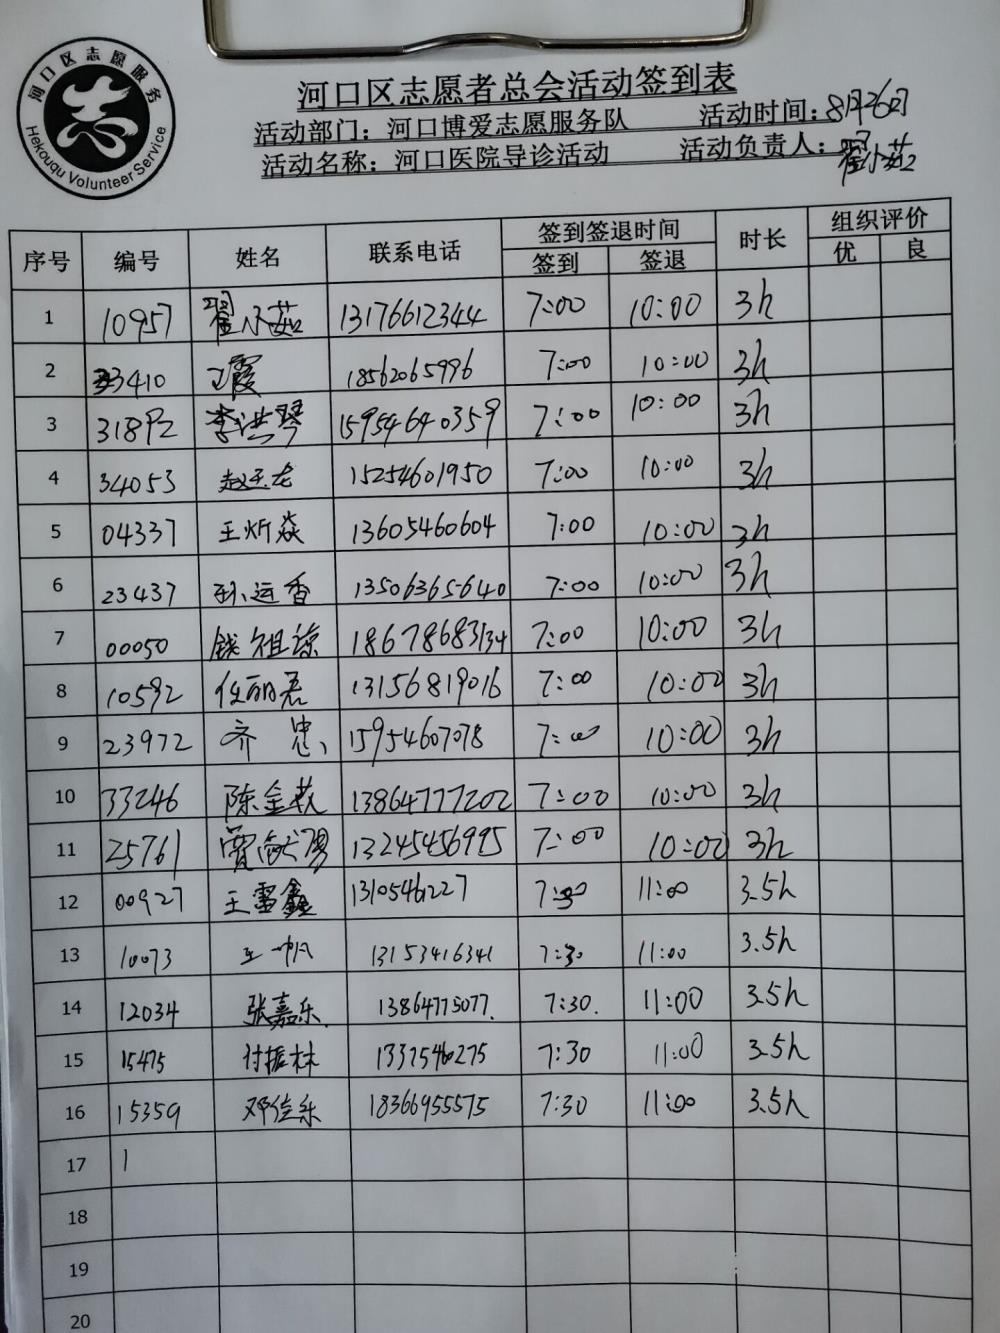 河口区志愿服务
志
Hekouqu Volunteer Service
河口区志愿者总会活动签到表
活动部门：河口博爱志愿服务队 活动时间：8月26日
活动名称：河口医院导诊活动 活动负责人：翟小茹
序号 编号 姓名 联系电话 签到签退时间 时长 组织评价
签到 签退 优 良
1 10957 翟小茹 13176612344 7:00 10:00 3h
2 33410 刁霞 18562065996 7:00 10:00 3h
3 31892 李洪琴 15954640359 7:00 10:00 3h
4 34053 赵玉龙 15254601950 7:00 10:00 3h
5 04337 王炘焱 13605460604 7:00 10:00 3h
6 23437 孙运香 13506365640 7:00 10:00 3h
7 00050 钱祖谅 18678683134 7:00 10:00 3h
8 10592 任丽君 13156819016 7:00 10:00 3h
9 23972 齐忠 15954607078 7:00 10:00 3h
10 33246 陈金荻 13864777202 7:00 10:00 3h
11 25761 贾献勇 13245456995 7:00 10:00 3h
12 00927 王雷鑫 13105461227 7:30 11:00 3.5h
13 10073 王帆 13153416341 7:30 11:00 3.5h
14 12034 张嘉乐 13864775077. 7:30. 11:00 3.5h
15 15475 付振林 13375460275 7:30 11:00 3.5h
16 15359 邓佳乐 18366955575 7:30 11:00 3.5h
17 1
18
19
20